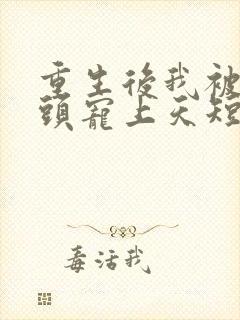 重生後我被
頭寵上天短
毒活我